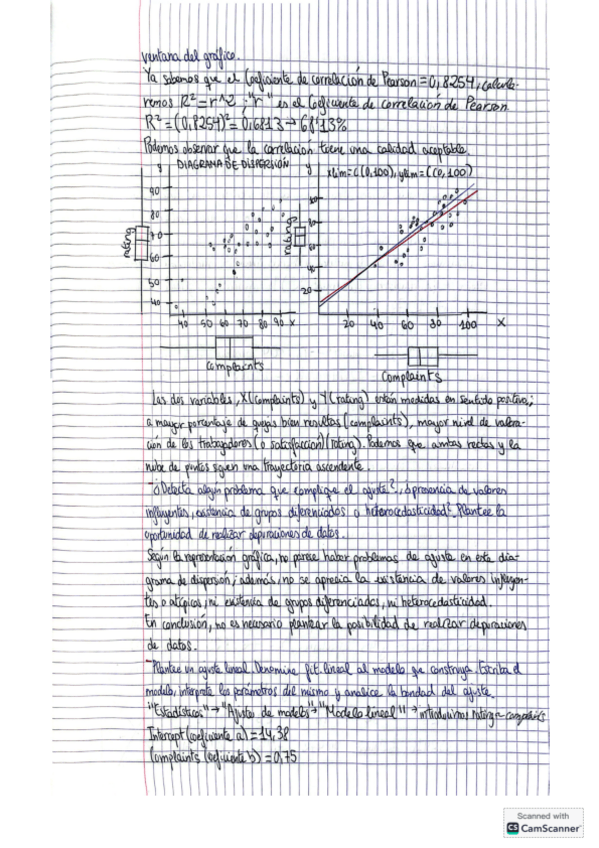 ventana del gráfico.
Ya sabemos que el Coeficiente de correlación de Pearson = 0,8254, calcula-
remos R²=r^2 ; "r" es el Coeficiente de correlación de Pearson.
R²=(0,8254)²=0,6813→68'13%
Podemos observar que la correlación tiene una calidad aceptable.
y DIAGRAMA DE DISPERSIÓN y xlim=c(0,100), ylim=c(0,100)
90
80
70
60
50
40
rating
40 50 60 70 80 90 X
complaints
80
60
40
20
rating
20 40 60 80 100 X
complaints
Las dos variables, X(complaints) y Y(rating) están medidas en sentido positivo;
a mayor porcentaje de quejas bien resueltas (complaints), mayor nivel de valora-
ción de los trabajadores (o satisfacción)(rating). Podemos que ambas rectas y la
nube de puntos siguen una trayectoria ascendente.
-¿Detecta algún problema que complique el ajuste?, ¿presencia de valores
influyentes, existencia de grupos diferenciados o heterocedasticidad? Plantee la
oportunidad de realizar depuraciones de datos.
Según la representación gráfica, no parece haber problemas de ajuste en este dia-
grama de dispersión; además, no se aprecia la existencia de valores influyen-
tes o atípicos, ni existencia de grupos diferenciados, ni heterocedasticidad.
En conclusión, no es necesario plantear la posibilidad de realizar depuraciones
de datos.
-Plantee un ajuste lineal. Denomine fit.lineal al modelo que construya. Escriba el
modelo, interprete los parámetros del mismo y analice la bondad del ajuste.
"Estadísticos"→"Ajuste de modelos"→"Modelo lineal"→introducimos rating~complaints
Intercept(coeficiente a)=14,38
Complaints (coeficiente b)=0,75
Scanned with
CS CamScanner